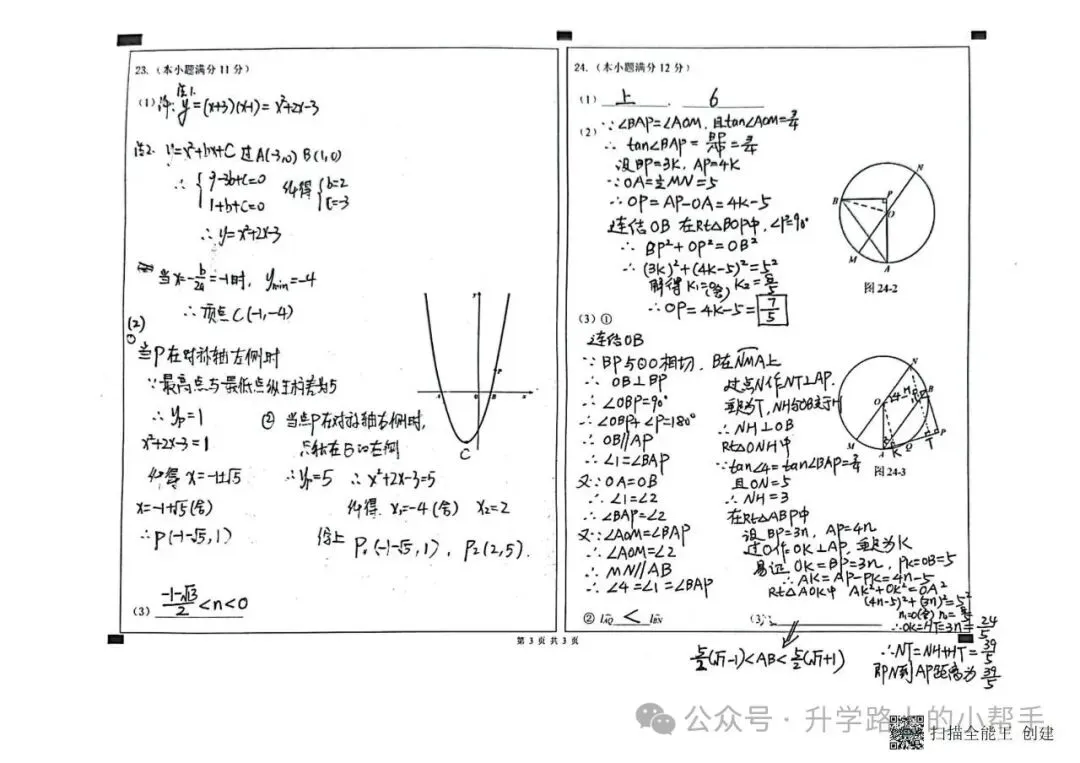 23.（本小题满分11分）
(1) 解: 法1. y=(x+3)(x-1)=x²+2x-3
法2. y=x²+bx+C 过A(-3,0) B(1,0)
∴ { 9-3b+c=0
1+b+c=0
解得 { b=2
c=-3
∴ y=x²+2x-3
当x=-b/2a=-1时, ymin=-4
∴顶点C(-1,-4)
(2)
①
当P在对称轴左侧时
∵最高点与最低点纵坐标差为5
∴ yp=1
x²+2x-3=1
解得 x=-1±√5
x=-1+√5(舍)
∴P(-1-√5,1)
② 当点P在对称轴右侧时,
点P在B的右侧
∴yp=5 ∴x²+2x-3=5
解得 x₁=-4(舍) x₂=2
综上 P₁(-1-√5,1), P₂(2,5).
y
P
A
O
B
x
C
(3) (-1-√13)/2<n<0
24.（本小题满分12分）
(1) 上 . 6
(2) ∵∠BAP=∠AOM, 且tan∠AOM=3/4
∴ tan∠BAP=BP/AP=3/4
设BP=3K, AP=4K
∵OA=½MN=5
∴OP=AP-OA=4K-5
连结OB 在Rt△BOP中, ∠P=90°
∴ BP²+OP²=OB²
∴(3K)²+(4K-5)²=5²
解得K₁=0(舍) K₂=8/5
∴OP=4K-5=7/5
N
B
P
O
M
A
图24-2
(3) ①
连结OB
∵BP与⊙O相切, B在NMA上
∴ OB⊥BP
∴∠OBP=90°
∴∠OBP+∠P=180°
∴OB∥AP
∴∠1=∠BAP
又∵OA=OB
∴∠1=∠2
∴∠BAP=∠2
又∵∠AOM=∠BAP
∴∠AOM=∠2
∴MN∥AB
∴∠4=∠1=∠BAP
过点N作NT⊥AP,
垂足为T, NH与OB交于H
∴NH⊥OB
Rt△ONH中
∵tan∠4=tan∠BAP=3/4
且ON=5
∴NH=3
在Rt△ABP中
设BP=3n, AP=4n
过O作OK⊥AP, 垂足为K
易证 OK=BP=3n, PK=OB=5
∴AK=AP-PK=4n-5
Rt△AOK中 AK²+OK²=OA²
(4n-5)²+(3n)²=5²
n₁=0(舍) n₂=8/5
∴OK=HT=3n=24/5
∴NT=NH+HT=39/5
即N到AP距离为39/5
N
O
4
H
B
M
A
K
Q
T
P
图24-3
② lAQ < lBN
(3)
5/2(√7-1)<AB<5/2(√7+1)
第 3 页 共 3 页
公众号·升学路上的小帮手
扫描全能王 创建